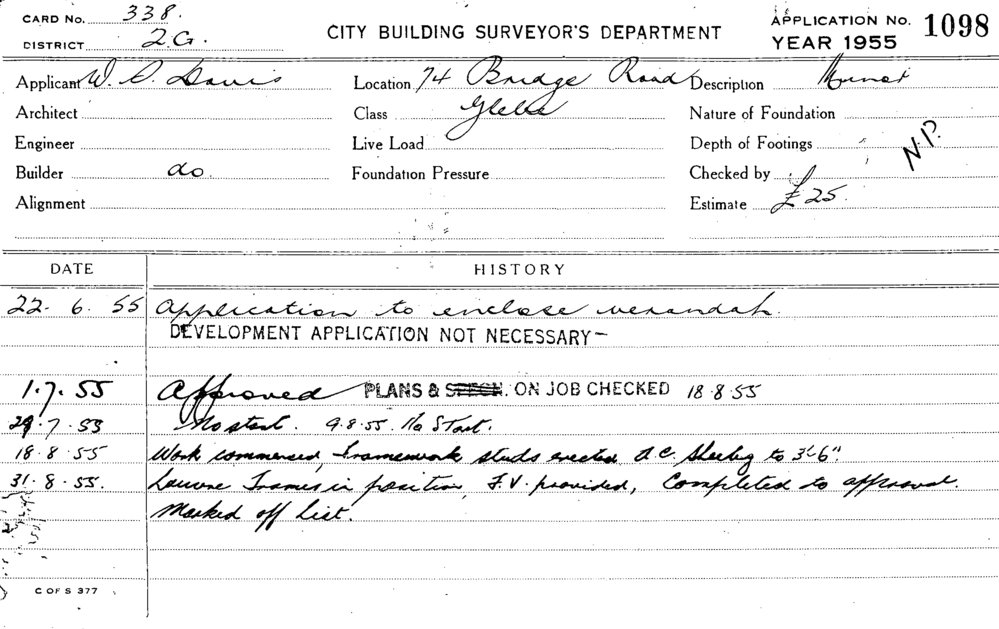 CARD No. 338.
DISTRICT 2.G.
CITY BUILDING SURVEYOR'S DEPARTMENT
APPLICATION No. 1098
YEAR 1955
Applicant W. Davis
Location 74 Bridge Road
Description Minor
Architect
Class Glebe
Nature of Foundation
Engineer
Live Load
Depth of Footings
N.P.
Builder do
Foundation Pressure
Checked by
Alignment
Estimate £25.
DATE HISTORY
22. 6. 55 Application to enclose verandah.
DEVELOPMENT APPLICATION NOT NECESSARY-
1.7.55 Approved PLANS & SPECN. ON JOB CHECKED 18.8.55
29.7.55 No start. 9.8.55. No Start.
18.8.55 Work commenced, Framework studs erected A.C. Sheeting to 3'-6".
31.8.55. Louvre Frames in position, F.V. provided, Completed to approval.
Marked off List.
C OF S 377